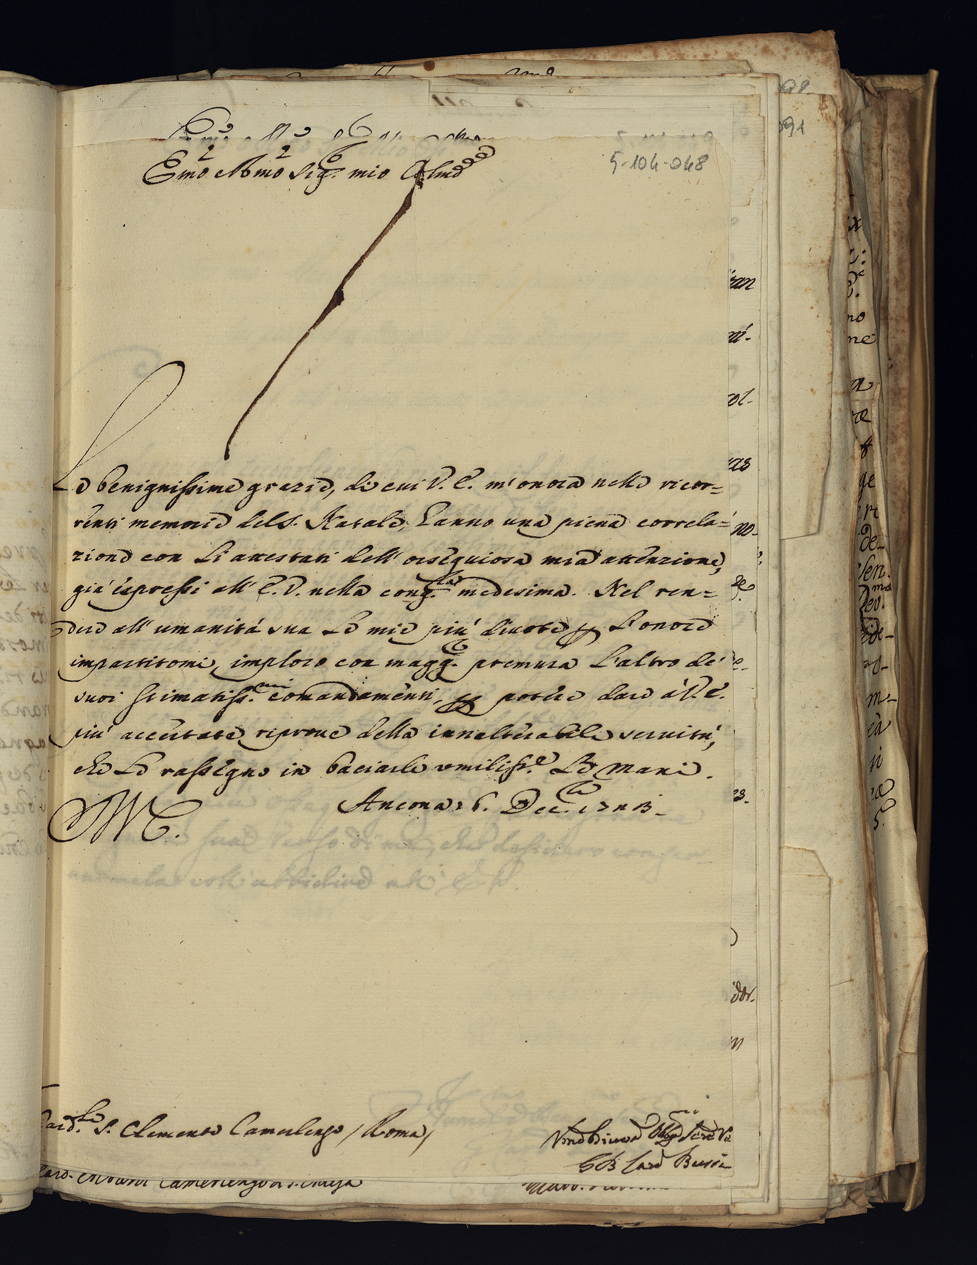 5-104-048
Emo e Rmo Sig.r mio Ossmo
Le benignissime grazie, de cui V. E. m'onora nelle ricor=
renti memorie del S. Natale, hanno una piena correla=
zione con li attestati dell'ossequiosa mia attenzione,
già espressi all' E. V. nella cong.ra medesima. Nel ren=
dere all' umanità sua le mie più divote per l'onore
impartitomi, imploro con magg.e premura l'altro de'
suoi stimatiss.mi comandamenti per poter dare à V. E.
più accertate riprove della inalterabile servitù,
che Le rassegno in baciarle umiliss.e Le mani.
Ancona 26. Dec.
Card.le S. Clemente Camerlengo / Roma /
Card. Bussi